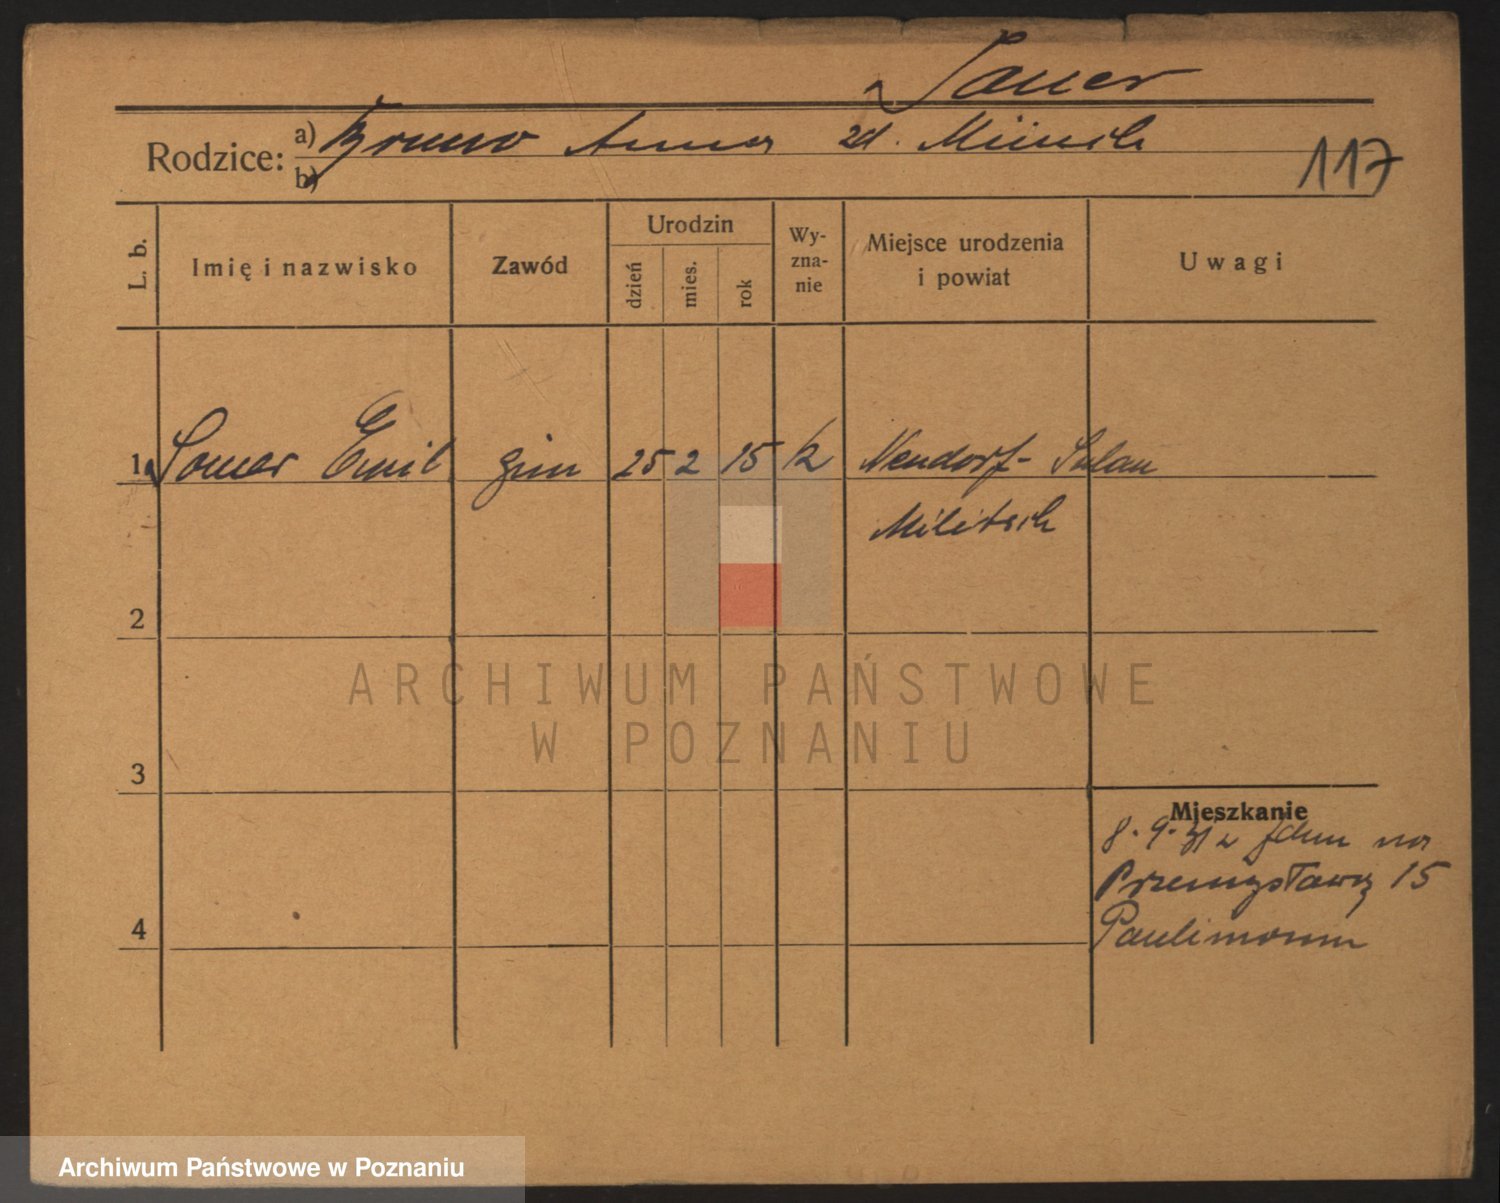 Sauer
Rodzice: a) Bruno Anna zd. Münich
b)
117
L. b. Imię i nazwisko Zawód Urodzin dzień mies. rok Wy-zna-nie Miejsce urodzenia i powiat Uwagi
1 Emil gim 25 2 15 k Neudorf-Sulau
Militsch
2
3
Mieszkanie
8. 9. 31 z na
4 Przemysławą 15
Paulimann
ARCHIWUM PAŃSTWOWE
W POZNANIU
Archiwum Państwowe w Poznaniu